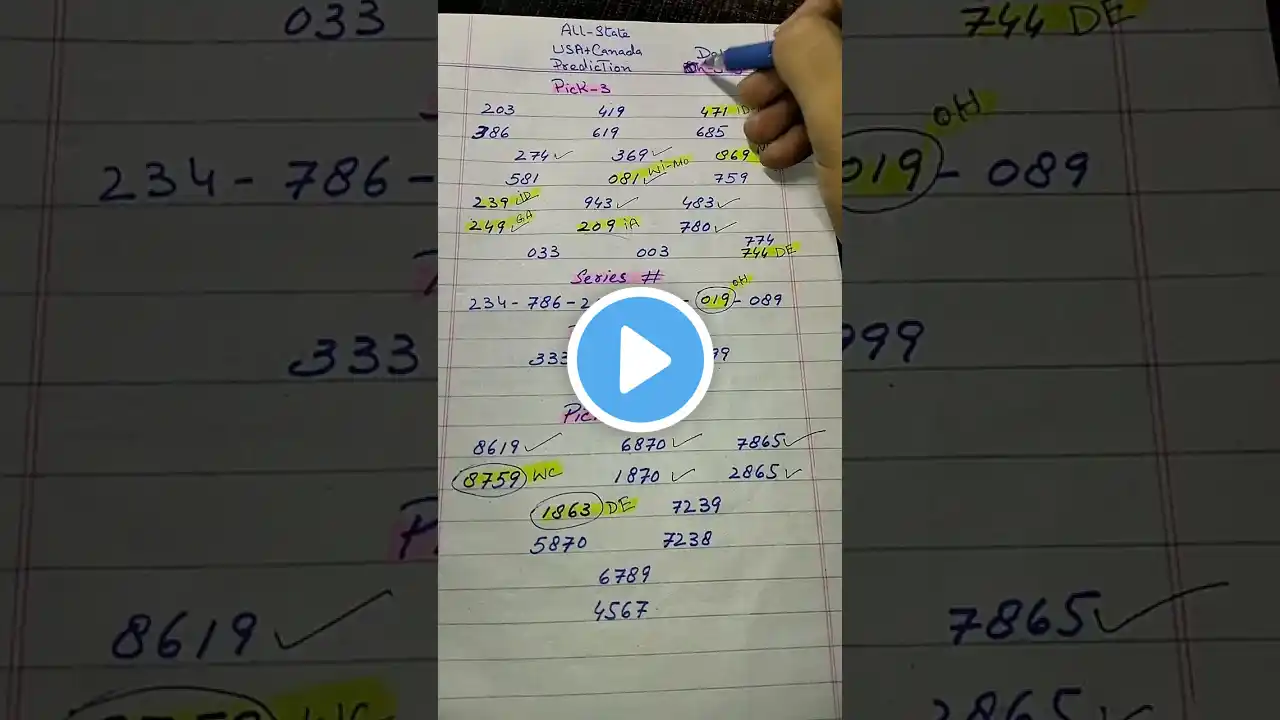 ALL-State
USA+Canada
Prediction
Pick-3
203 419 471
386 619 685
274✓ 369✓ 869
581 081✓ Wi-Mo 759
239 943✓ 483✓
249✓ GA 209 iA 780✓
774
033 003 744 DE
Series #
OH
234-786-2 -019-089
333 99
8619✓ 6870✓ 7865✓
8759 WC 1870✓ 2865✓
1863 DE 7239
5870 7238
6789
4567